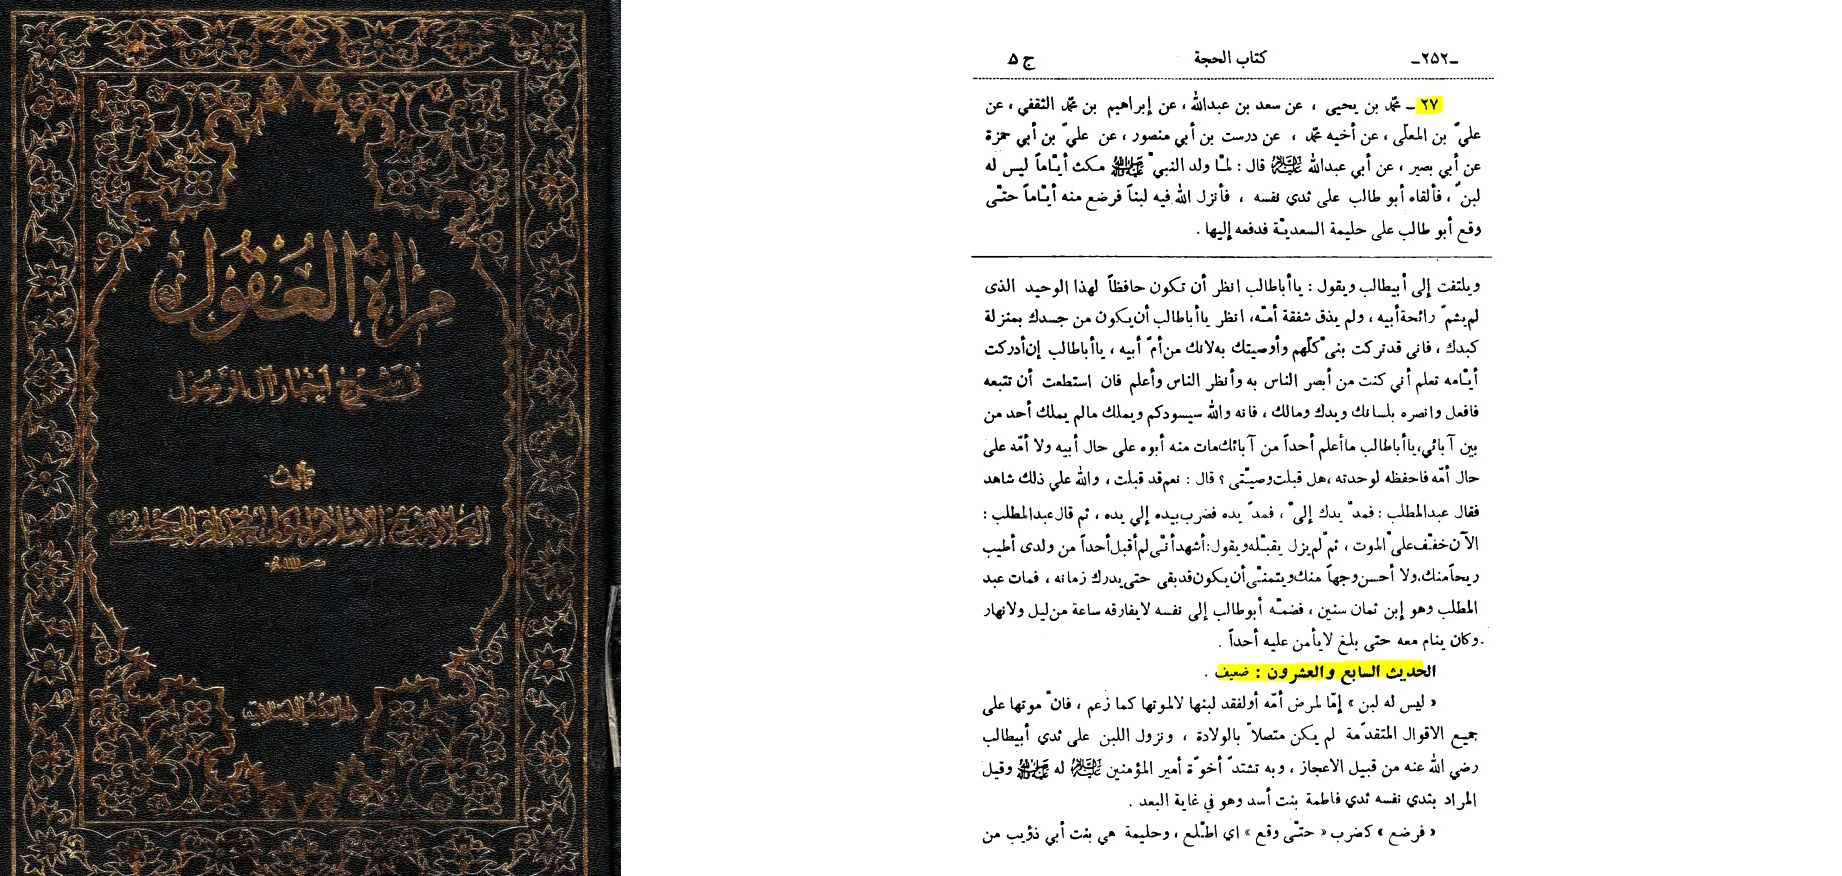 مرآة العقول
في شرح أخبار آل الرسول
تأليف
العلامة شيخ الإسلام المولى محمد باقر المجلسي
دار الكتب الإسلامية
ـ٢٥٢ـ كتاب الحجة ج ٥
٢٧ ـ محمّد بن يحيى ، عن سعد بن عبدالله ، عن إبراهيم بن محمّد الثقفي ، عن
عليّ بن المعلّى ، عن أخيه محمّد ، عن درست بن أبي منصور ، عن عليّ بن أبي حمزة
عن أبي بصير ، عن أبي عبدالله عليه السلام قال : لمّا ولد النبيّ صلى الله عليه وآله مكث أيّاماً ليس له
لبنٌ ، فألقاه أبو طالب على ثدي نفسه ، فأنزل الله فيه لبناً فرضع منه أيّاماً حتّى
وقع أبو طالب على حليمة السعديّة فدفعه إليها .
ويلتفت إلى أبيطالب ويقول : يا أباطالب انظر أن تكون حافظاً لهذا الوحيد الذى
لم يشمّ رائحة أبيه ، ولم يذق شفقة أمّه، انظر يا أباطالب أن يكون من جسدك بمنزلة
كبدك ، فانى قد تركت بنىّ كلّهم وأوصيتك به لانك من أمّ أبيه ، يا أباطالب إن أدركت
أيّامه تعلم أني كنت من أبصر الناس به وأنظر الناس وأعلم فان استطعت أن تتبعه
فافعل وانصره بلسانك ويدك ومالك ، فانه والله سيسودكم ويملك مالم يملك أحد من
بين آبائي، يا أباطالب ما أعلم أحداً من آبائك مات منه أبوه على حال أبيه ولا أمّه على
حال أمّه فاحفظه لوحدته ، هل قبلت وصيّتى ؟ قال : نعم قد قبلت ، والله علي ذلك شاهد
فقال عبدالمطلب : فمدّ يدك إلىّ ، فمدّ يده فضرب بيده إلي يده ، ثم قال عبدالمطلب :
الآن خفّف علىّ الموت ، ثمّ لم يزل يقبّله ويقول : أشهد أنّى لم أقبل أحداً من ولدى أطيب
ريحاً منك، ولا أحسن وجهاً منك ويتمنّى أن يكون قد بقى حتى يدرك زمانه ، فمات عبد
المطلب وهو إبن ثمان سنين ، فضمّه أبوطالب إلى نفسه لايفارقه ساعة من ليل ولانهار
وكان ينام معه حتى بلغ لايأمن عليه أحداً .
الحديث السابع والعشرون : ضعيف .
« ليس له لبن » إمّا لمرض أمّه أو لفقد لبنها لالموتها كما زعم ، فانّ موتها على
جميع الاقوال المتقدّمة لم يكن متصلاً بالولادة ، ونزول اللبن على ثدي أبيطالب
رضي الله عنه من قبيل الاعجاز ، وبه تشتدّ أخوّة أمير المؤمنين عليه السلام له صلى الله عليه وآله وقيل
المراد بثدي نفسه ثدي فاطمة بنت أسد وهو في غاية البعد .
« فرضع » كضرب « حتّى وقع » اي اطّلع ، وحليمة هي بنت أبي ذؤيب من